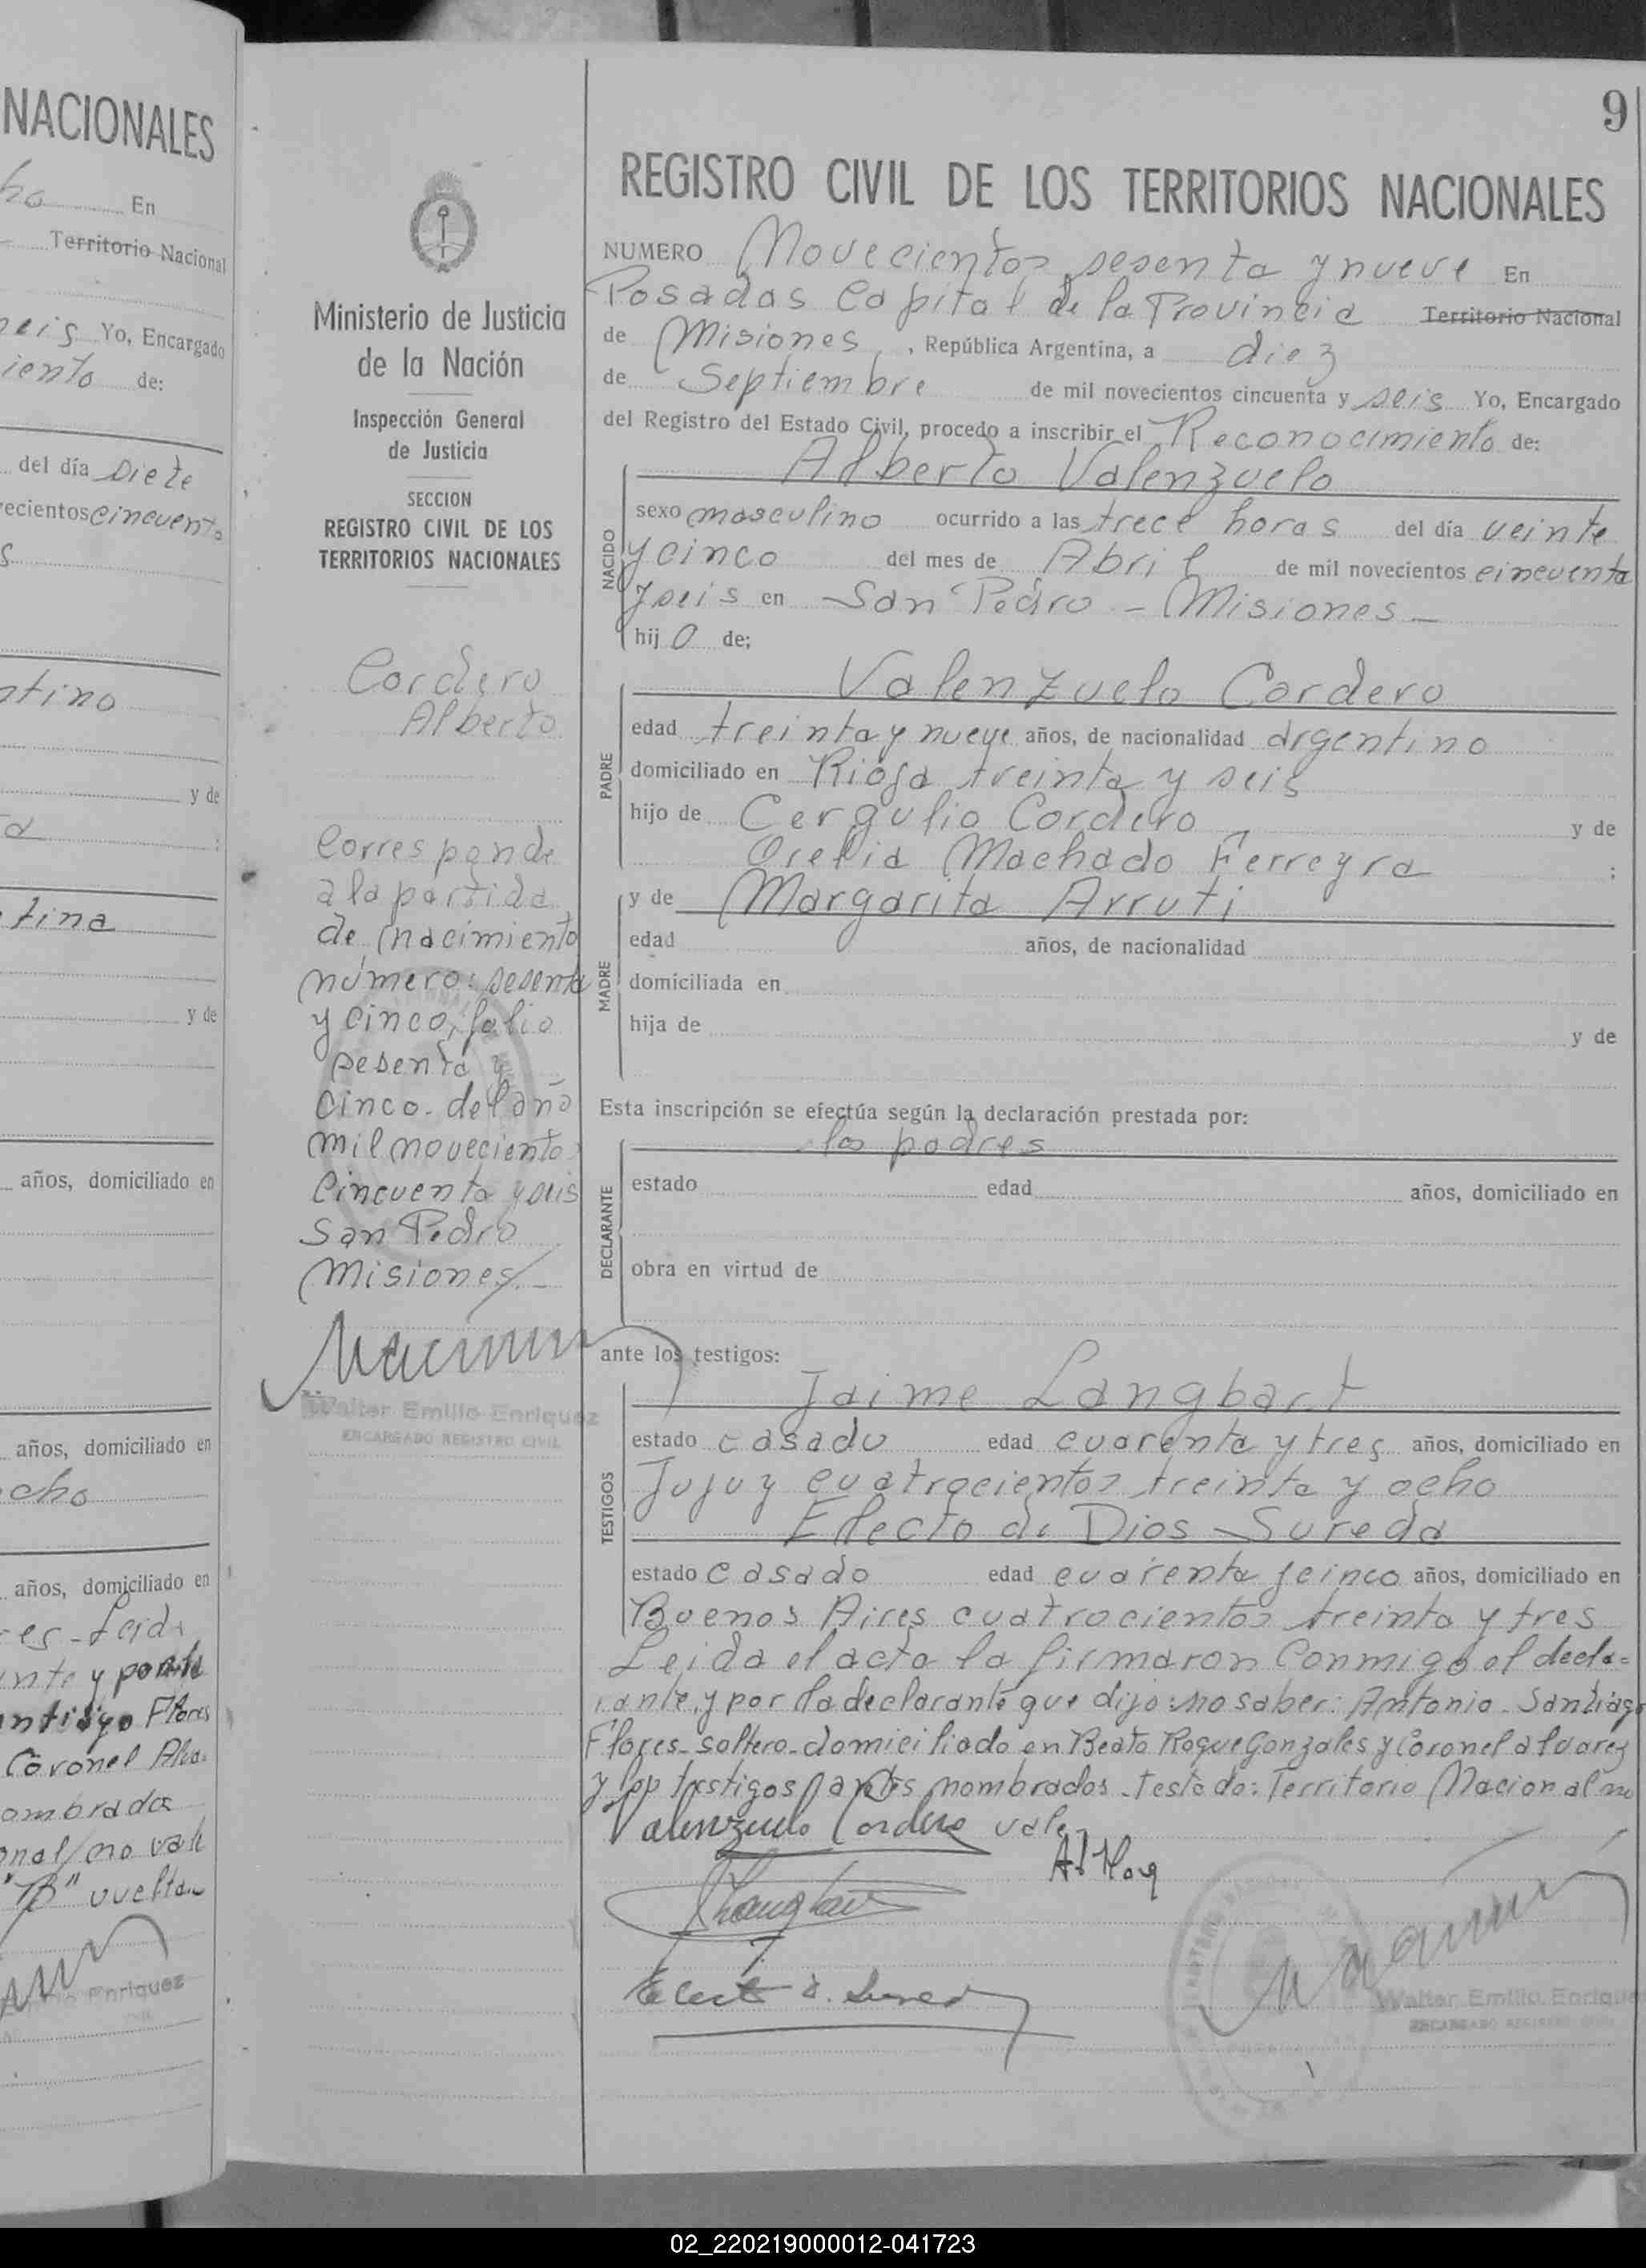 NACIONALES
ho En
Territorio Nacional
seis Yo, Encargado
iento de:
del día Siete
ecientos cincuenta
s
ntino
y de
a ;
tina
y de
años, domiciliado en
años, domiciliado en
ocho
años, domiciliado en
es - Leida
ante y por la
Flores
Coronel Alva-
ombrados
onal/no vale
"B" vuelta
Enriquez
9
REGISTRO CIVIL DE LOS TERRITORIOS NACIONALES
Ministerio de Justicia
de la Nación
Inspección General
de Justicia
SECCION
REGISTRO CIVIL DE LOS
TERRITORIOS NACIONALES
Cordero
Alberto
Corresponde
a la partida
de nacimiento
número: sesenta
y cinco, folio
sesenta y
cinco - del año
mil novecientos
cincuenta y seis
San Pedro
Misiones -
Walter Emilio Enriquez
ENCARGADO REGISTRO CIVIL
NUMERO Novecientos sesenta y nueve En
Posadas Capital de la Provincia Territorio Nacional
de Misiones, República Argentina, a diez
de Septiembre de mil novecientos cincuenta y seis Yo, Encargado
del Registro del Estado Civil, procedo a inscribir el Reconocimiento de:
Alberto Valenzuelo
NACIDO
sexo masculino ocurrido a las trece horas del día veinte
y cinco del mes de Abril de mil novecientos cincuenta
y seis en San Pedro - Misiones -
hijo de;
Valenzuelo Cordero
PADRE
edad treinta y nueve años, de nacionalidad argentino
domiciliado en Rioja treinta y seis
hijo de Cergulio Cordero y de
Orelia Machado Ferreyra ;
MADRE
y de Margarita Arruti
edad años, de nacionalidad
domiciliada en
hija de y de
Esta inscripción se efectúa según la declaración prestada por:
los padres
DECLARANTE
estado edad años, domiciliado en
obra en virtud de
ante los testigos:
Jaime Langbart
TESTIGOS
estado casado edad cuarenta y tres años, domiciliado en
Jujuy cuatrocientos treinta y ocho
Electo de Dios Sureda
estado casado edad cuarenta y cinco años, domiciliado en
Buenos Aires cuatrocientos treinta y tres
Leida el acta la firmaron conmigo el decla-
rante, y por la declarante que dijo: no saber: Antonio - Santiago
Flores - soltero - domiciliado en Beato Roque Gonzales y Coronel alvarez
y los testigos antes nombrados. Testado: Territorio Nacional no
vale -
Valenzuelo Cordero
Walter Emilio Enriquez
ENCARGADO REGISTRO CIVIL
02_220219000012-041723